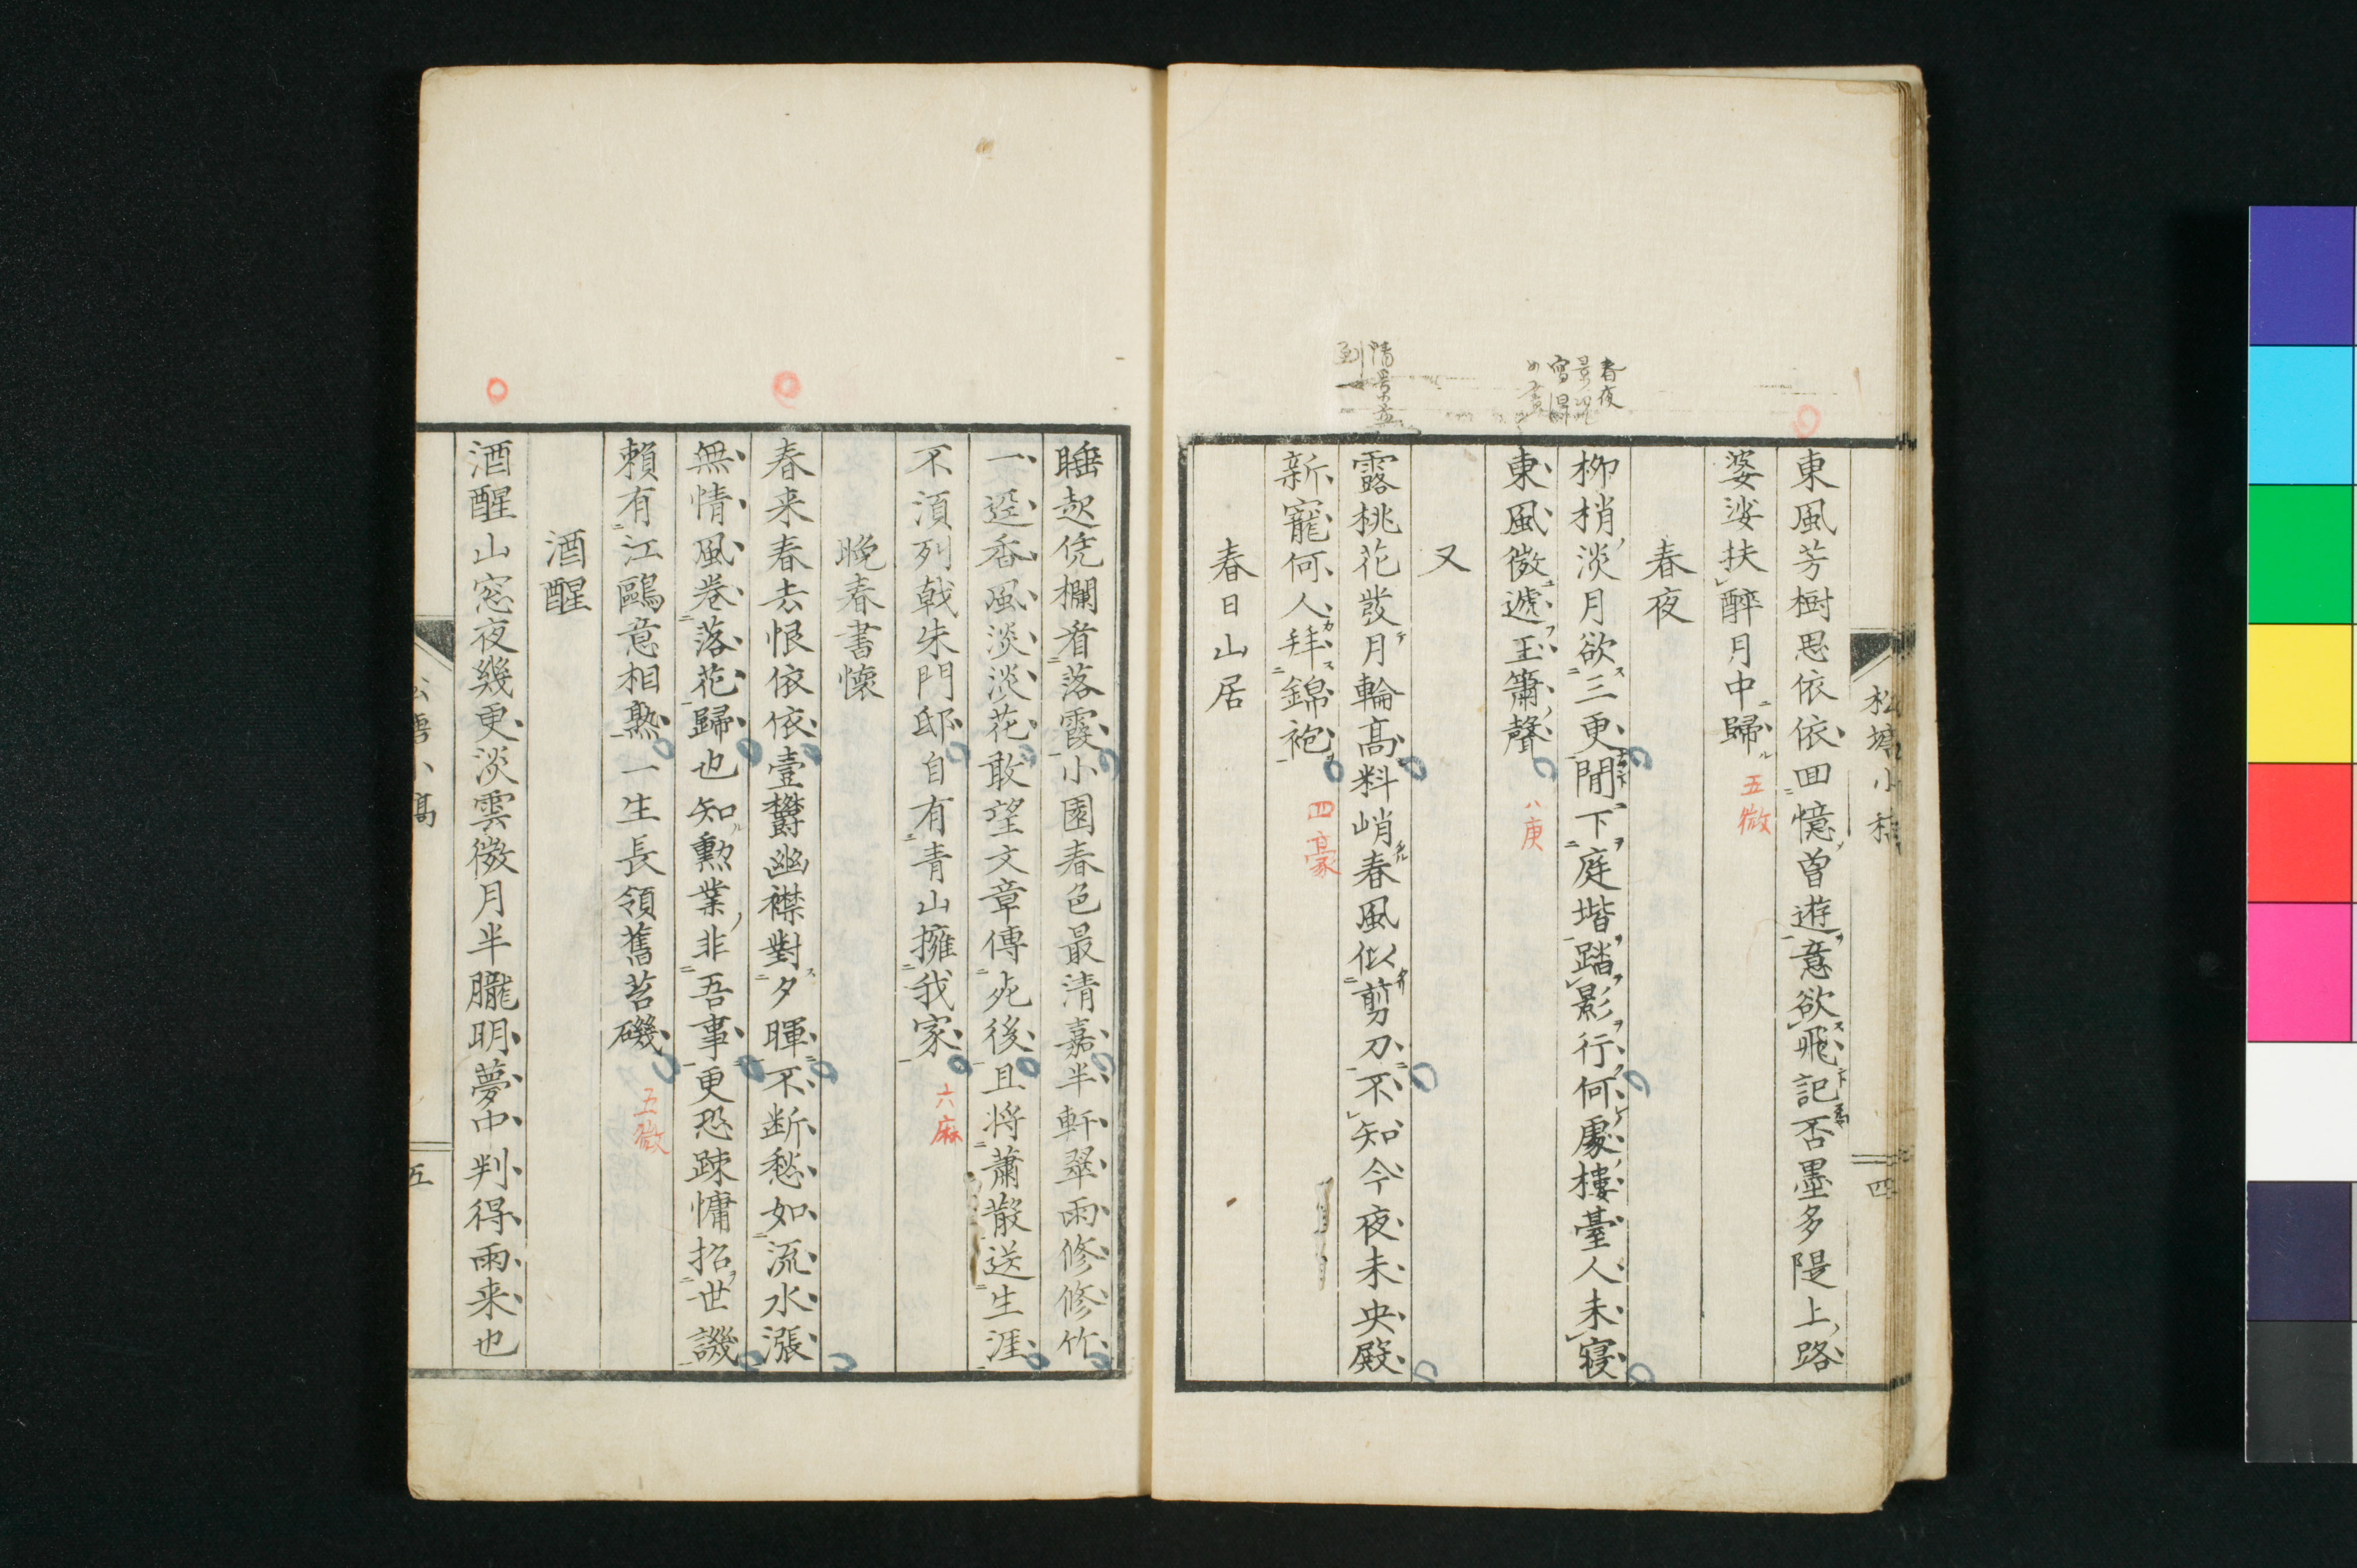 松塘小稿
四
東風芳樹思依依回憶曾遊意欲飛記否墨多隄上路
婆娑扶醉月中歸
五微
春夜
柳梢淡月欲三更閒下庭堦踏影行何處樓臺人未寢
東風微遞玉簫聲
八庚
春夜
又
露桃花發月輪高料峭春風似剪刀不知今夜未央殿
新寵何人拜錦袍
四豪
春日山居
睡起凭欄看落霞小園春色最清嘉半軒翠雨修修竹
一逕香風淡淡花敢望文章傳死後且将蕭散送生涯
不須列戟朱門邸自有青山擁我家
六麻
晚春書懷
春来春去恨依依壹欝幽襟對夕暉不断愁如流水漲
無情風卷落花歸也知勲業非吾事更恐踈慵招世譏
賴有江鷗意相熟一生長領舊苔磯
五微
酒醒
酒醒山窓夜幾更淡雲微月半朧明夢中判得雨来也
五